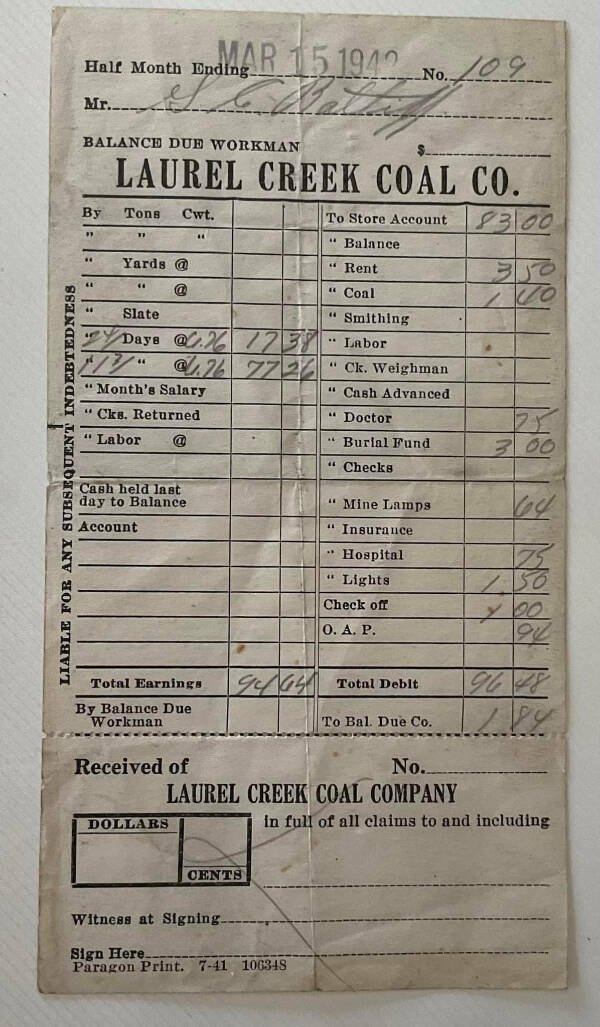 Half Month Ending MAR 15 1942 No. 109
Mr. S C Batliff
BALANCE DUE WORKMAN $
LAUREL CREEK COAL CO.
By Tons Cwt. To Store Account 83 00
" " " " Balance
" Yards @ " Rent 3 50
" " @ " Coal 1 40
" Slate " Smithing
" Days @ 6.76 17 38 " Labor
" " @ 6.76 77 26 " Ck. Weighman
" Month's Salary " Cash Advanced
" Cks. Returned " Doctor 75
" Labor @ " Burial Fund 3 00
" Checks
Cash held last
day to Balance " Mine Lamps 64
Account " Insurance
" Hospital 75
" Lights 1 50
Check off 00
O. A. P. 94
Total Earnings 94 64 Total Debit 96 48
By Balance Due
Workman To Bal. Due Co. 1 84
LIABLE FOR ANY SUBSEQUENT INDEBTEDNESS
Received of No.
LAUREL CREEK COAL COMPANY
DOLLARS in full of all claims to and including
CENTS
Witness at Signing
Sign Here
Paragon Print. 7-41 106348